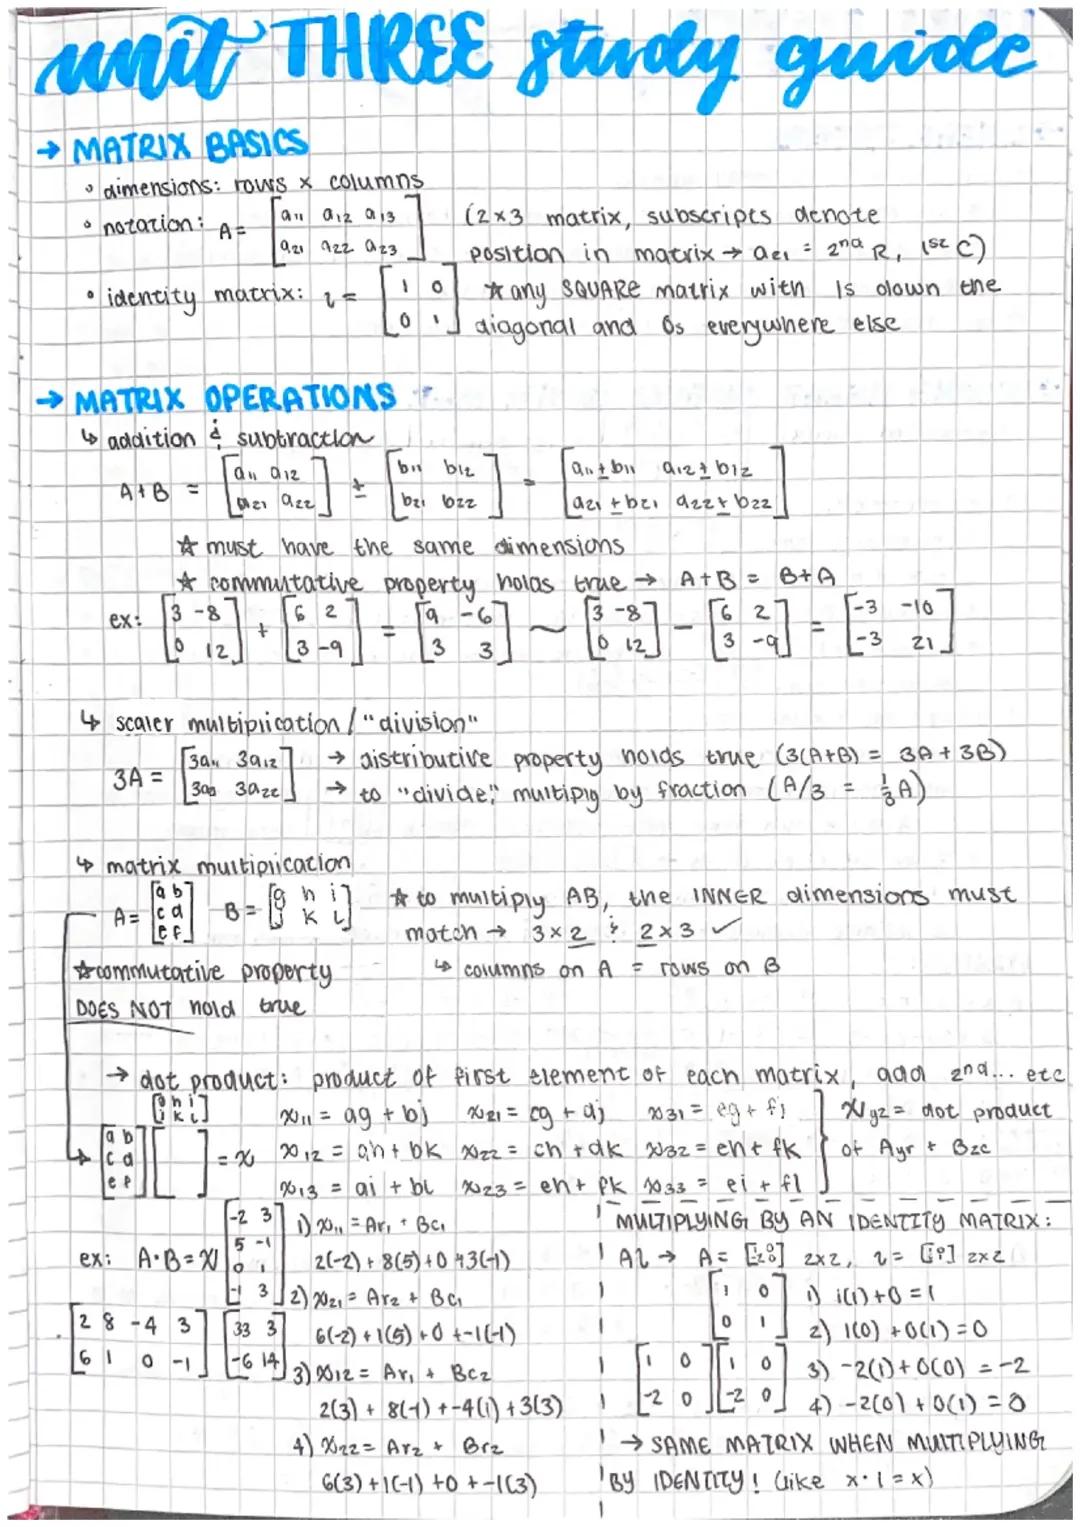 unit THREE study guide
→ MATRIX BASICS
• dimensions: rows x columns
• notation: A = [a11 a12 a13 / a21 a22 a23] (2×3 matrix, subscripts denote
position in matrix → a21 = 2nd R, 1st C)
• identity matrix: I = [1 0 / 0 1] ☆ any SQUARE matrix with 1s down the
diagonal and 0s everywhere else
→ MATRIX OPERATIONS
↳ addition & subtraction
A±B = [a11 a12 / a21 a22] ± [b11 b12 / b21 b22] = [a11±b11 a12±b12 / a21±b21 a22±b22]
☆ must have the same dimensions
☆ commutative property holds true → A+B = B+A
ex: [3 -8 / 0 12] + [6 2 / 3 -9] = [9 -6 / 3 3] ~ [3 -8 / 0 12] - [6 2 / 3 -9] = [-3 -10 / -3 21]
↳ scaler multiplication / "division"
3A = [3a11 3a12 / 3a21 3a22] → distributive property holds true (3(A+B) = 3A + 3B)
→ to "divide," multiply by fraction (A/3 = 1/3 A)
↳ matrix multiplication
A = [a b / c d / e f] B = [g h i / j k l] ☆ to multiply AB, the INNER dimensions must
match → 3×2 & 2×3 ✓
☆ commutative property ↳ columns on A = rows on B
DOES NOT hold true
→ dot product: product of first element of each matrix, add 2nd... etc
[g h i / j k l] x11 = ag + bj x21 = cg + dj x31 = eg + fj } Xyz = dot product
[a b / c d / e f] [ ] = x x12 = ah + bk x22 = ch + dk x32 = eh + fk of Ayr + Bzc
x13 = ai + bl x23 = eh + fk x33 = ei + fl
ex: A·B = X [-2 3 / 5 -1 / 0 1 / -1 3] 1) x11 = Ar1 + Bc1
2(-2) + 8(5) + 0 + 3(-1)
2) x21 = Ar2 + Bc1
[2 8 -4 3 / 6 1 0 -1] [33 3 / -6 14] 6(-2) + 1(5) + 0 + -1(-1)
3) x12 = Ar1 + Bc2
2(3) + 8(-1) + -4(1) + 3(3)
4) x22 = Ar2 + Br2
6(3) + 1(-1) + 0 + -1(3)
MULTIPLYING BY AN IDENTITY MATRIX:
AI → A = [1 0 / -2 0] 2x2, I = [1 0 / 0 1] 2x2
[1 0 / 0 1] 1) 1(1) + 0 = 1
2) 1(0) + 0(1) = 0
[1 0 / -2 0] [1 0 / -2 0] 3) -2(1) + 0(0) = -2
4) -2(0) + 0(1) = 0
→ SAME MATRIX WHEN MULTIPLYING
BY IDENTITY! (like x·1 = x)